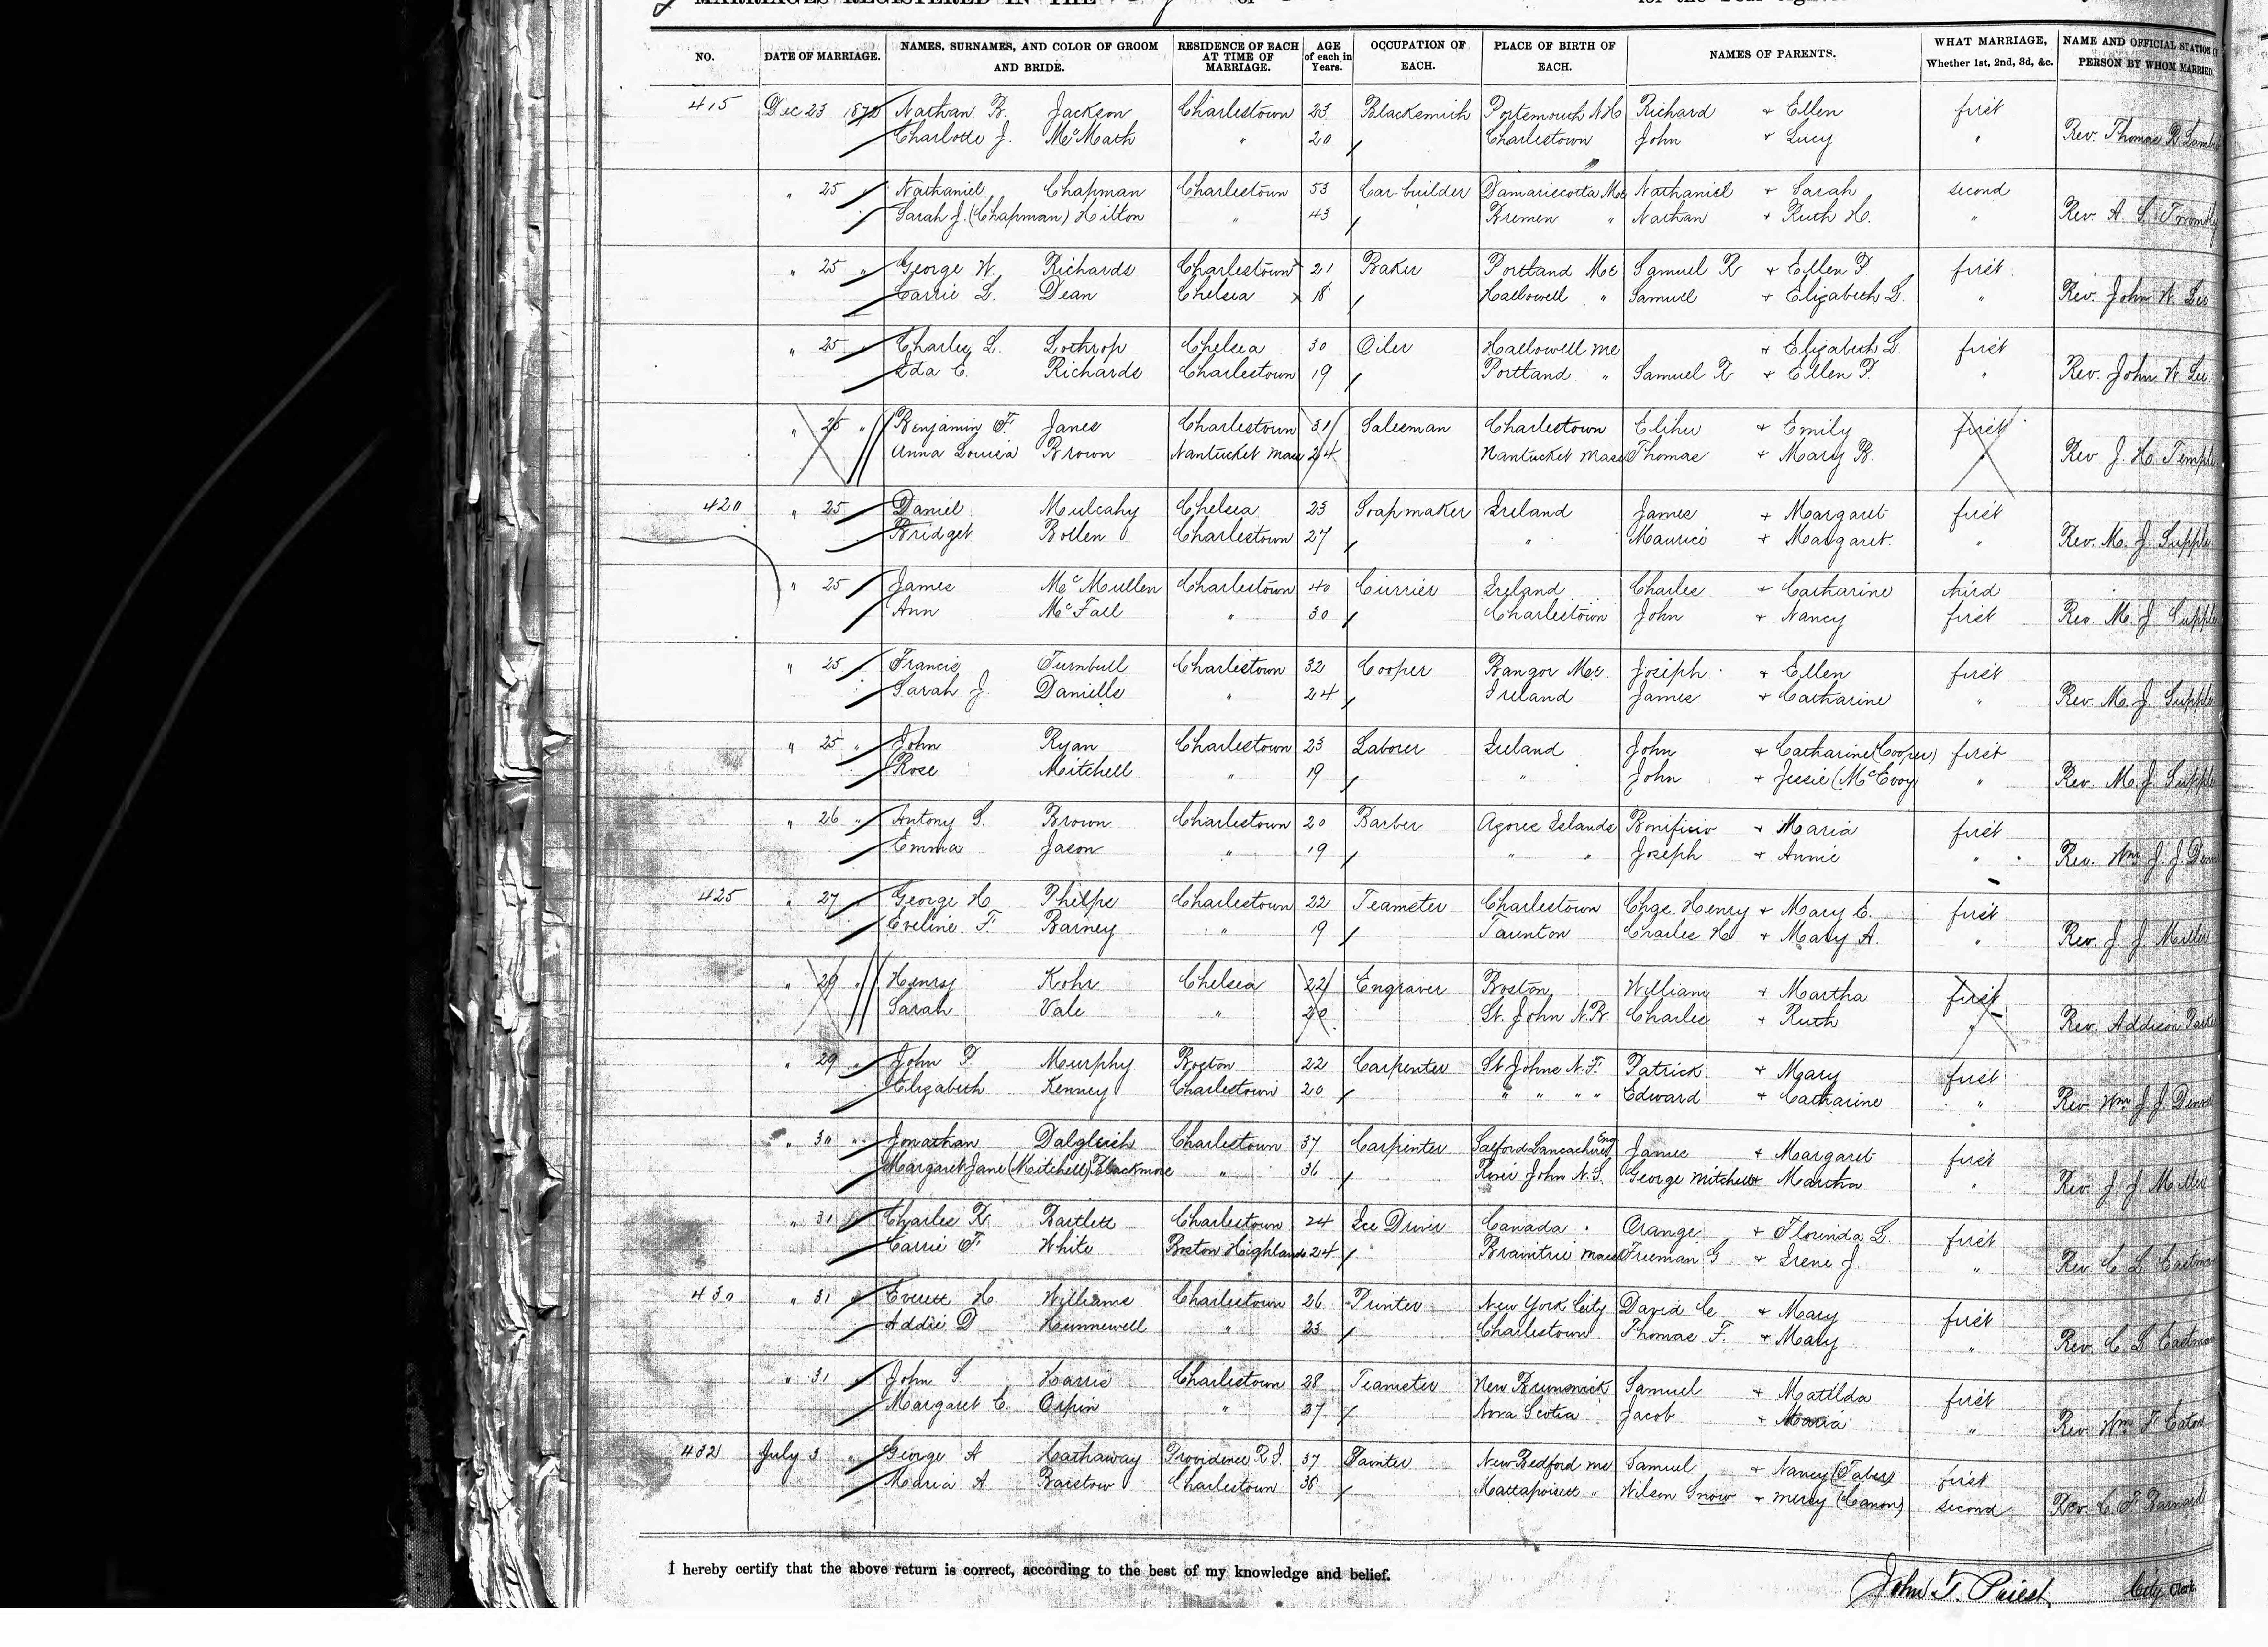 MARRIAGES REGISTERED IN THE
NO. DATE OF MARRIAGE. NAMES, SURNAMES, AND COLOR OF GROOM AND BRIDE. RESIDENCE OF EACH AT TIME OF MARRIAGE. AGE of each in Years. OCCUPATION OF EACH. PLACE OF BIRTH OF EACH. NAMES OF PARENTS. WHAT MARRIAGE, Whether 1st, 2nd, 3d, &c. NAME AND OFFICIAL STATION OF PERSON BY WHOM MARRIED.
415 Dec 23 1872 Nathan B. Jackson Charlestown 23 Blacksmith Portsmouth N H Richard + Ellen first
Charlotte J. McMath " 20 Charlestown John + Lucy " Rev. Thomas R. Lambert
" 25 " Nathaniel Chapman Charlestown 53 Car-builder Damariscotta Me Nathaniel + Sarah second
Sarah J. (Chapman) Hilton " 43 Bremen " Nathan + Ruth H. " Rev. A. S. Twombly
" 25 " George W. Richards Charlestown 21 Baker Portland Me Samuel R + Ellen P. first
Carrie L. Dean Chelsea 18 Hallowell " Samuel + Elizabeth L. " Rev. John W. Lee
" 25 " Charles L. Lothrop Chelsea 30 Oiler Hallowell Me + Elizabeth L. first
Ida E. Richards Charlestown 19 Portland " Samuel R + Ellen P. " Rev. John W. Lee
" 25 " Benjamin F. Janes Charlestown 31 Salesman Charlestown Elihu + Emily first
Anna Louisa Brown Nantucket Mass 24 Nantucket Mass Thomas + Mary B. " Rev. J. H. Temple
420 " 25 Daniel Mulcahy Chelsea 23 Soapmaker Ireland James + Margaret first
Bridget Bollen Charlestown 27 " Maurice + Margaret " Rev. M. J. Supple
" 25 James McMullen Charlestown 40 Currier Ireland Charles + Catharine third
Ann McFall " 30 Charlestown John + Nancy first Rev. M. J. Supple
" 25 Francis Turnbull Charlestown 32 Cooper Bangor Me. Joseph + Ellen first
Sarah J. Daniells " 24 Ireland James + Catharine " Rev. M. J. Supple
" 25 " John Ryan Charlestown 23 Laborer Ireland John + Catharine (Cooper) first
Rose Mitchell " 19 " John + Jessie (McEvoy " Rev. M. J. Supple
" 26 " Antony S. Brown Charlestown 20 Barber Azores Islands + Maria first
Emma Jason " 19 " " Joseph + Annie " Rev. Wm J. J.
425 " 27 George H Phelps Charlestown 22 Teamster Charlestown Henry + Mary E. first
Eveline F. Barney " 19 Taunton Charles H + Mary A. " Rev. J. J. Miller
" 29 " Henry Kohr Chelsea 22 Engraver Boston William + Martha first
Sarah Vale " 20 St. John N.B. Charles + Ruth " Rev. Addison Parker
" 29 " John P. Murphy Boston 22 Carpenter St Johns N.F. Patrick + Mary first
Elizabeth Kenney Charlestown 20 " " " " Edward + Catharine " Rev. Wm J. J.
" 30 " Jonathan Dalgleish Charlestown 37 Carpenter Salford Lancashire Eng James + Margaret first
Margaret Jane (Mitchell) Blackmore " 36 River John N.S. George Mitchell + Martha " Rev. J. J. Miller
" 31 Charles R. Bartlett Charlestown 24 Ice Driver Canada Orange + Florinda L. first
Carrie F. White Boston Highlands 24 Braintree Mass Freeman G + Irene J. " Rev. C. L. Eastman
430 " 31 Everett H. Williams Charlestown 26 Printer New York City David C + Mary first
Addie D Hunnewell " 23 Charlestown Thomas F. + Mary " Rev. C. L. Eastman
" 31 John S Harris Charlestown 28 Teamster New Brunswick Samuel + Matilda first
Margaret E. Orpin " 27 Nova Scotia Jacob + Maria " Rev. Wm F. Eaton
432 July 3 " George A Hathaway Providence R.I. 37 Painter New Bedford Ms Samuel + Nancy (Taber) first
Maria A. Barstow Charlestown 38 Mattapoisett " Wilson Snow + Mercy (Canon) second Rev. C. F. Barnard
I hereby certify that the above return is correct, according to the best of my knowledge and belief.
John T. Priest City Clerk.